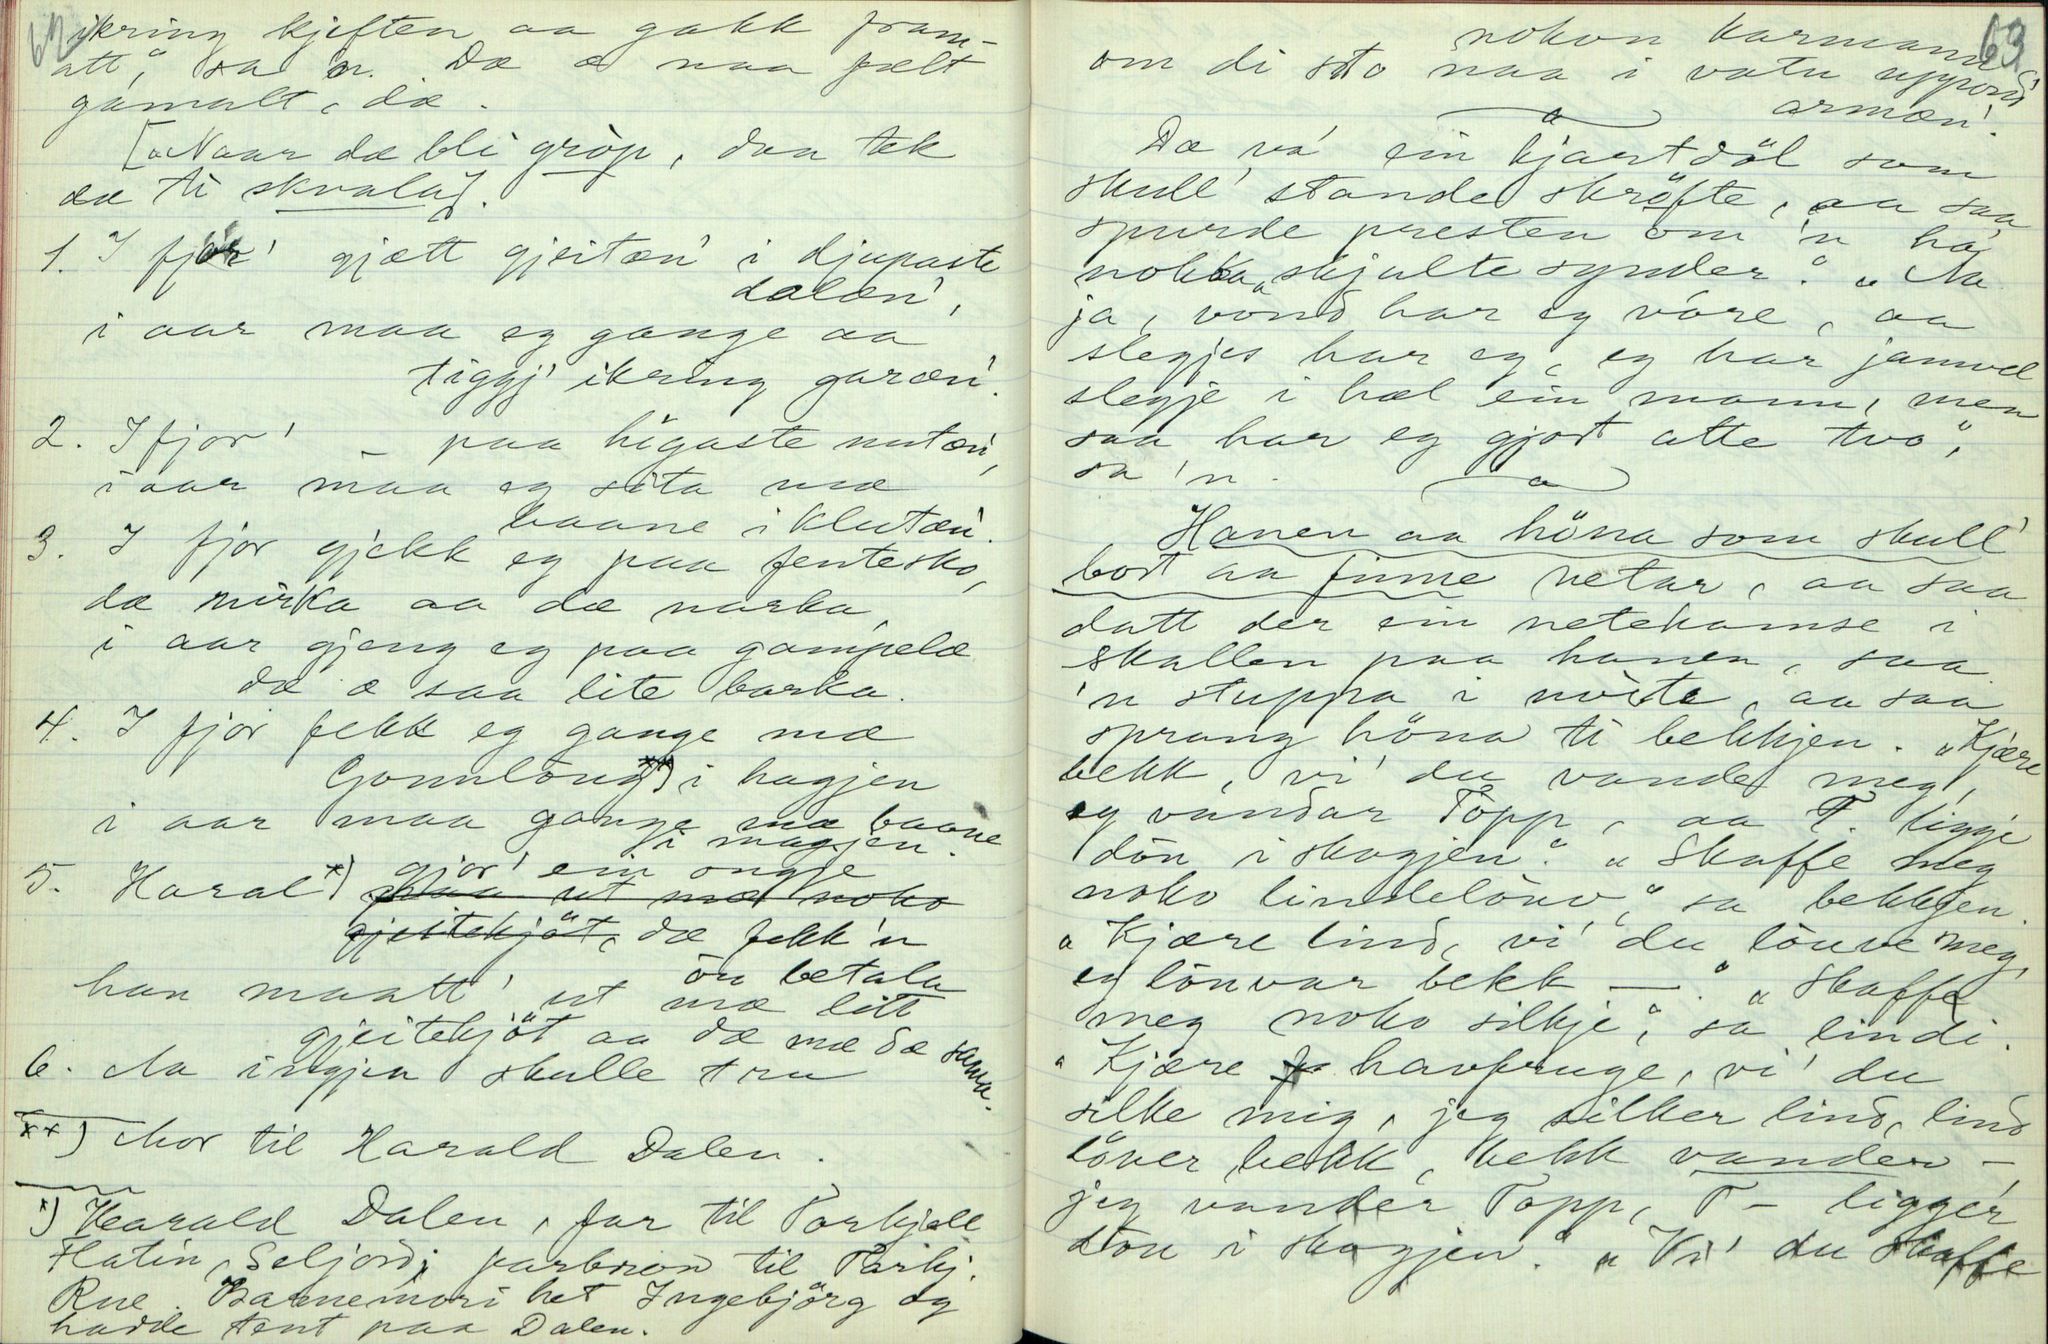 62
ikring kjeften aa gakk fram-
att," sa 'n. Dæ æ naa fælt
gamalt, dæ.
[„Naar dæ bli gröp, daa tek
dæ ti skvala].
1. I fjor' gjætt gjeitæn' i djupaste
dalæn',
i aar maa eg gange aa
tiggj' ikring garæn'.
2. I fjor' — paa högaste nutæn',
i aar maa eg sita mæ
baane i klutæn'.
3. I fjor gjekk eg paa fentesko,
dæ mirka aa dæ marka,
i aar gjeng eg paa gampelæ
dæ æ saa lite barka.
4. I fjor fekk eg gange mæ
Gonnlöug **) i hagjen
i aar maa gange mæ baane
i magjen.
5. Haral *) gjor' ein ongje
maa ut mæ noko
gjeitekjöt, dæ fekk 'n
ön betala
han maatt' ut mæ litt
gjeitekjöt aa dæ mæ dæ sama.
6. Aa ingjen skulle tru
**) Mor til Harald Dalen.
*) Harald Dalen, far til Torkjell
Flatin, Seljord; farbror til Torkj.
Rue. Barnemori het Ingebjörg og
hadde tent paa Dalen.
63
nokon karmann
om di sto naa i vatn uppond'
armæn'.
Dæ va' ein kjartdöl som
skull' stande skröfte, aa saa
spurde presten om 'n ha'
nokka „skjulte synder." „Aa
ja, vond har eg vore, aa
slegjes har eg, eg har jamvel
slegje i hæl ein mann, men
saa har eg gjort atte two",
sa 'n.
Hanen aa höna som skull'
bort aa finne netar, aa saa
datt der ein netekamse i
skallen paa hanen, saa
'n stuppa i nöste, aa saa
sprang höna ti bekkjen. „Kjære
bekk, vi' du vande meg,
eg vandar Topp, aa T. ligge
dön i skogjen." „Skaffe meg
noko lindelöuv," sa bekkjen.
„Kjære lind, vi' du löuve meg,
eg löuvar bekk —." „Skaffe
meg noko silkje," sa lindi.
„Kjære havfruge, vi' du
silke mig, jeg silker lind, lind
löver bekk, bekk vander —,
jeg vander Topp, T — ligger
dön i skogjen." „Vi' du skaffe